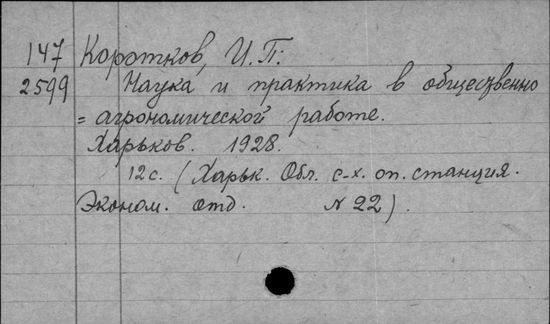 147 Коротков, И.П:
2599 Наука и практика в общественно
= агрономической работе.
Харьков. 1928.
12с. (Харьк. Обл. с-х. оп. станция.
Эконом. отд. N 22).